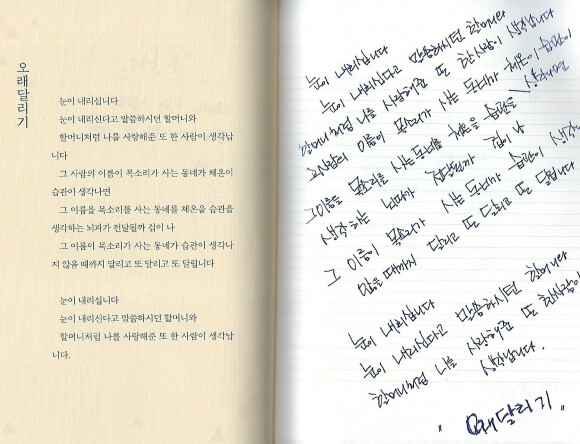 오래달리기
눈이 내리십니다
눈이 내리신다고 말씀하시던 할머니와
할머니처럼 나를 사랑해준 또 한 사람이 생각납
니다
그 사람의 이름이 목소리가 사는 동네가 체온이
습관이 생각나면
그 이름을 목소리를 사는 동네를 체온을 습관을
생각하는 뇌파가 전달될까 겁이 나
그 이름이 목소리가 사는 동네가 습관이 생각나
지 않을 때까지 달리고 또 달리고 또 달립니다
눈이 내리십니다
눈이 내리신다고 말씀하시던 할머니와
할머니처럼 나를 사랑해준 또 한 사람이 생각납
니다.
눈이 내리십니다
눈이 내리신다고 말씀하시던 할머니와
할머니처럼 나를 사랑해준 또 한 사람이 생각납니다
그 사람의 이름이 목소리가 사는 동네가 체온이 습관이
생각나면
그 이름을 목소리를 사는 동네를 체온을 습관을
생각하는 뇌파가 전달될까 겁이 나
그 이름이 목소리가 사는 동네가 습관이
않을 때까지 달리고 또 달리고 또 달립니다
눈이 내리십니다
눈이 내리신다고 말씀하시던 할머니와
할머니처럼 나를 사랑해준 또 한사람이
생각납니다.
"오래달리기"